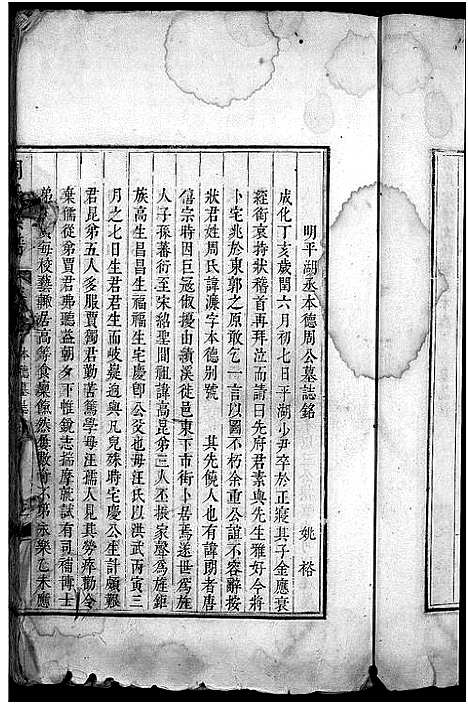 明平湖丞本德周公墓誌銘
姚裕
成化丁亥歲閏六月初七日平湖少尹卒於正寢其子金應衰
經銜哀持狀稽首再拜泣而請曰先府君素與先生雅好今將
卜宅兆於東郭之原敢乞一言以圖不朽余重公誼不容辭按
狀君姓周氏諱濂字本德別號　其先饒人也有諱明者唐
僖宗時因巨寇俶擾由績溪徙邑東下市街卜居焉遂世為旌
人子孫蕃衍至宋紹聖間祖諱高昆弟三人丕振家聲為旌鉅
族高生昌昌生福福生宅慶卽公父也母汪氏以洪武丙寅三
月之七日生君君生而岐嶷迥與凡兒殊時宅慶公生計頗艱
君昆弟五人多服賈獨君勤苦篤學母汪孺人見其勞瘁勸令
棄儒從弟賈君弗聽益朝夕下帷銳志揣摩就試有司補博士
弟　每校藝輒居高等食廩　然　永樂乙未應